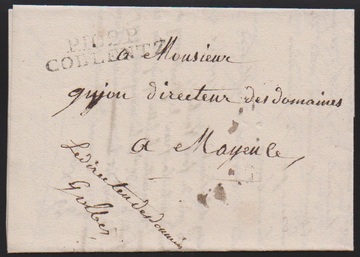 P.102.P.
COBLENTZ
a Monsieur
gujon directeur des domaines
a Mayence,
Le directeur des domaines